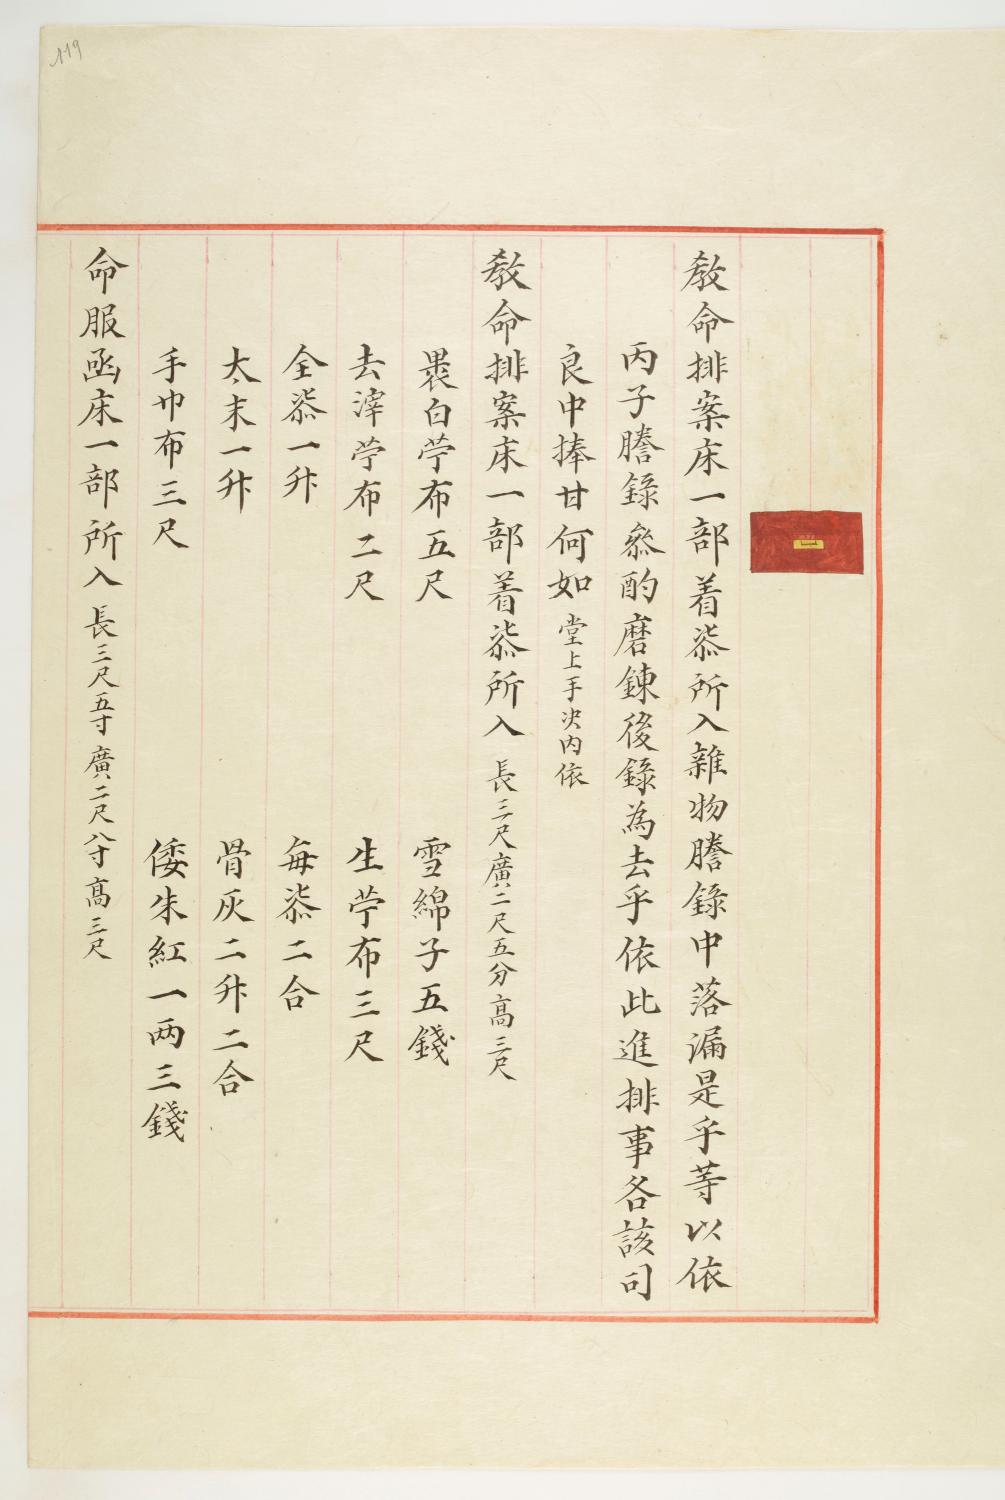 119
教命排案床一部着柒所入雜物謄錄中落漏是乎等以依
丙子謄錄叅酌磨鍊後錄為去乎依此進排事各該司
良中捧甘何如 堂上手决内依
教命排案床一部着柒所入 長三尺廣二尺五分高三尺
褁白苧布五尺 雪綿子五錢
去滓苧布二尺 生苧布三尺
全柒一升 每柒二合
太末一升 骨灰二升二合
手巾布三尺 倭朱紅一兩三錢
命服函床一部所入 長三尺五寸廣二尺八寸高三尺